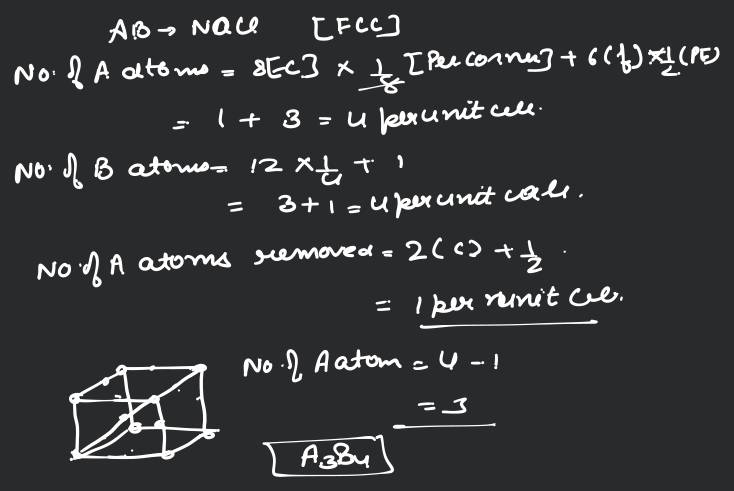 AB → NaCl [FCC]
No. of A atoms = 8[C] × 1/8 [Per corner] + 6(f) × 1/2 (PF)
= 1 + 3 = 4 per unit cell.
No. of B atoms = 12 × 1/4 + 1
= 3 + 1 = 4 per unit cell.
No. of A atoms removed = 2(C) + 1/2 .
= 1 per unit cell.
No. of A atom = 4 - 1
= 3
A3B4